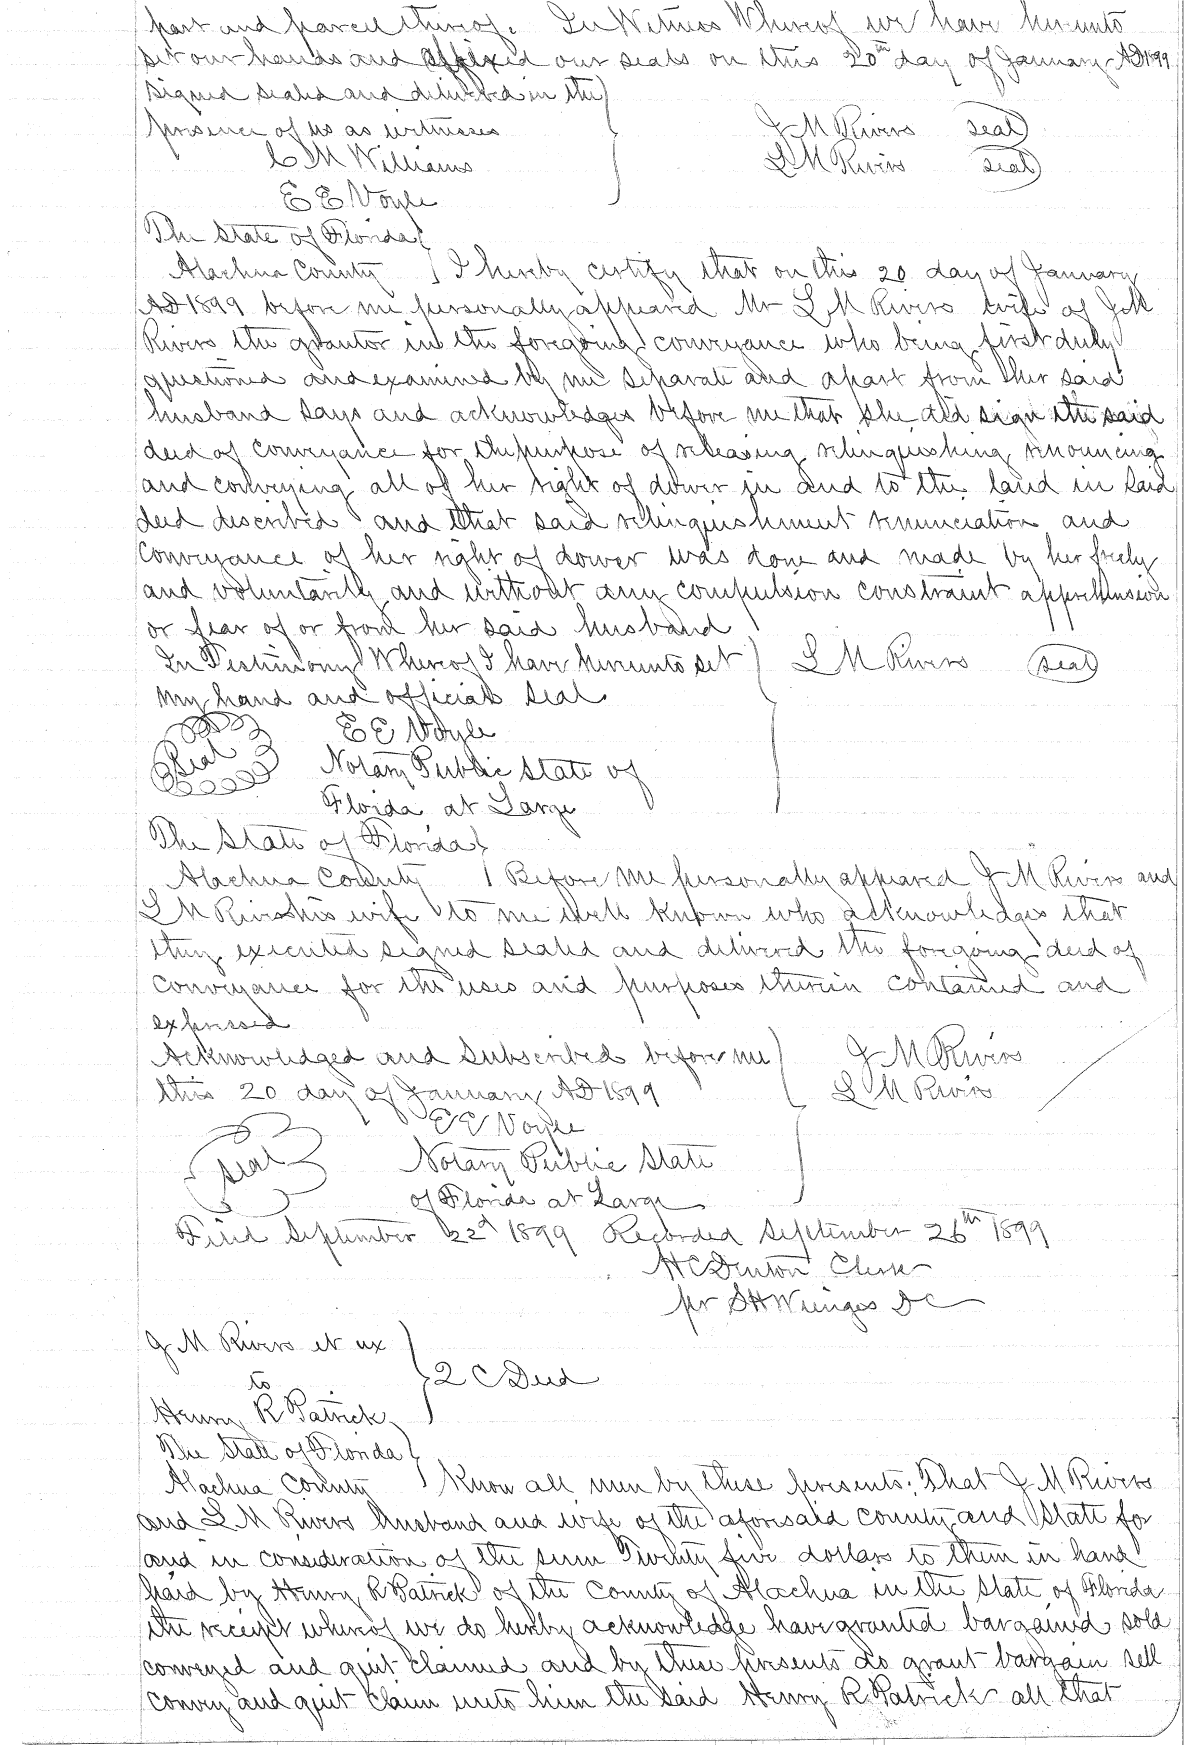 part and parcel thereof. In Witness Whereof we have hereunto
set our hands and affixed our seals on this 20th day of January AD 1899
Signed sealed and delivered in the
presence of us as witnesses J M Rivers seal
C M Williams L M Rivers seal
E E Voyle
The State of Florida
Alachua County I hereby certify that on this 20 day of January
AD 1899 before me personally appeared Mr L M Rivers wife of J M
Rivers the grantor in the foregoing conveyance who being first duly
questioned and examined by me separate and apart from her said
husband says and acknowledges before me that she did sign the said
deed of conveyance for the purpose of releasing relinquishing renouncing
and conveying all of her right of dower in and to the land in said
deed described and that said relinquishment renunciation and
conveyance of her right of dower was done and made by her freely
and voluntarily and without any compulsion constraint apprehension
or fear of or from her said husband
In Testimony Whereof I have hereunto set L M Rivers seal
my hand and official seal
E E Voyle
Seal Notary Public State of
Florida at Large
The State of Florida
Alachua County Before me personally appeared J M Rivers and
L M Rivers his wife to me well known who acknowledges that
they executed signed sealed and delivered the foregoing deed of
conveyance for the uses and purposes therein contained and
expressed
Acknowledged and Subscribed before me J M Rivers
this 20 day of January AD 1899 L M Rivers
E E Voyle
seal Notary Public State
of Florida at Large
Filed September 22d 1899 Recorded September 26th 1899
H C Denton Clerk
per S H Wienges D C
J M Rivers et ux
to 2 C Deed
Henry R Patrick
The State of Florida
Alachua County Know all men by these presents: That J M Rivers
and L M Rivers husband and wife of the aforesaid county and State for
and in consideration of the sum Twenty five dollars to them in hand
paid by Henry R Patrick of the County of Alachua in the State of Florida
the receipt whereof we do hereby acknowledge have granted bargained sold
conveyed and quit claimed and by these presents do grant bargain sell
convey and quit claim unto him the said Henry R Patrick all that